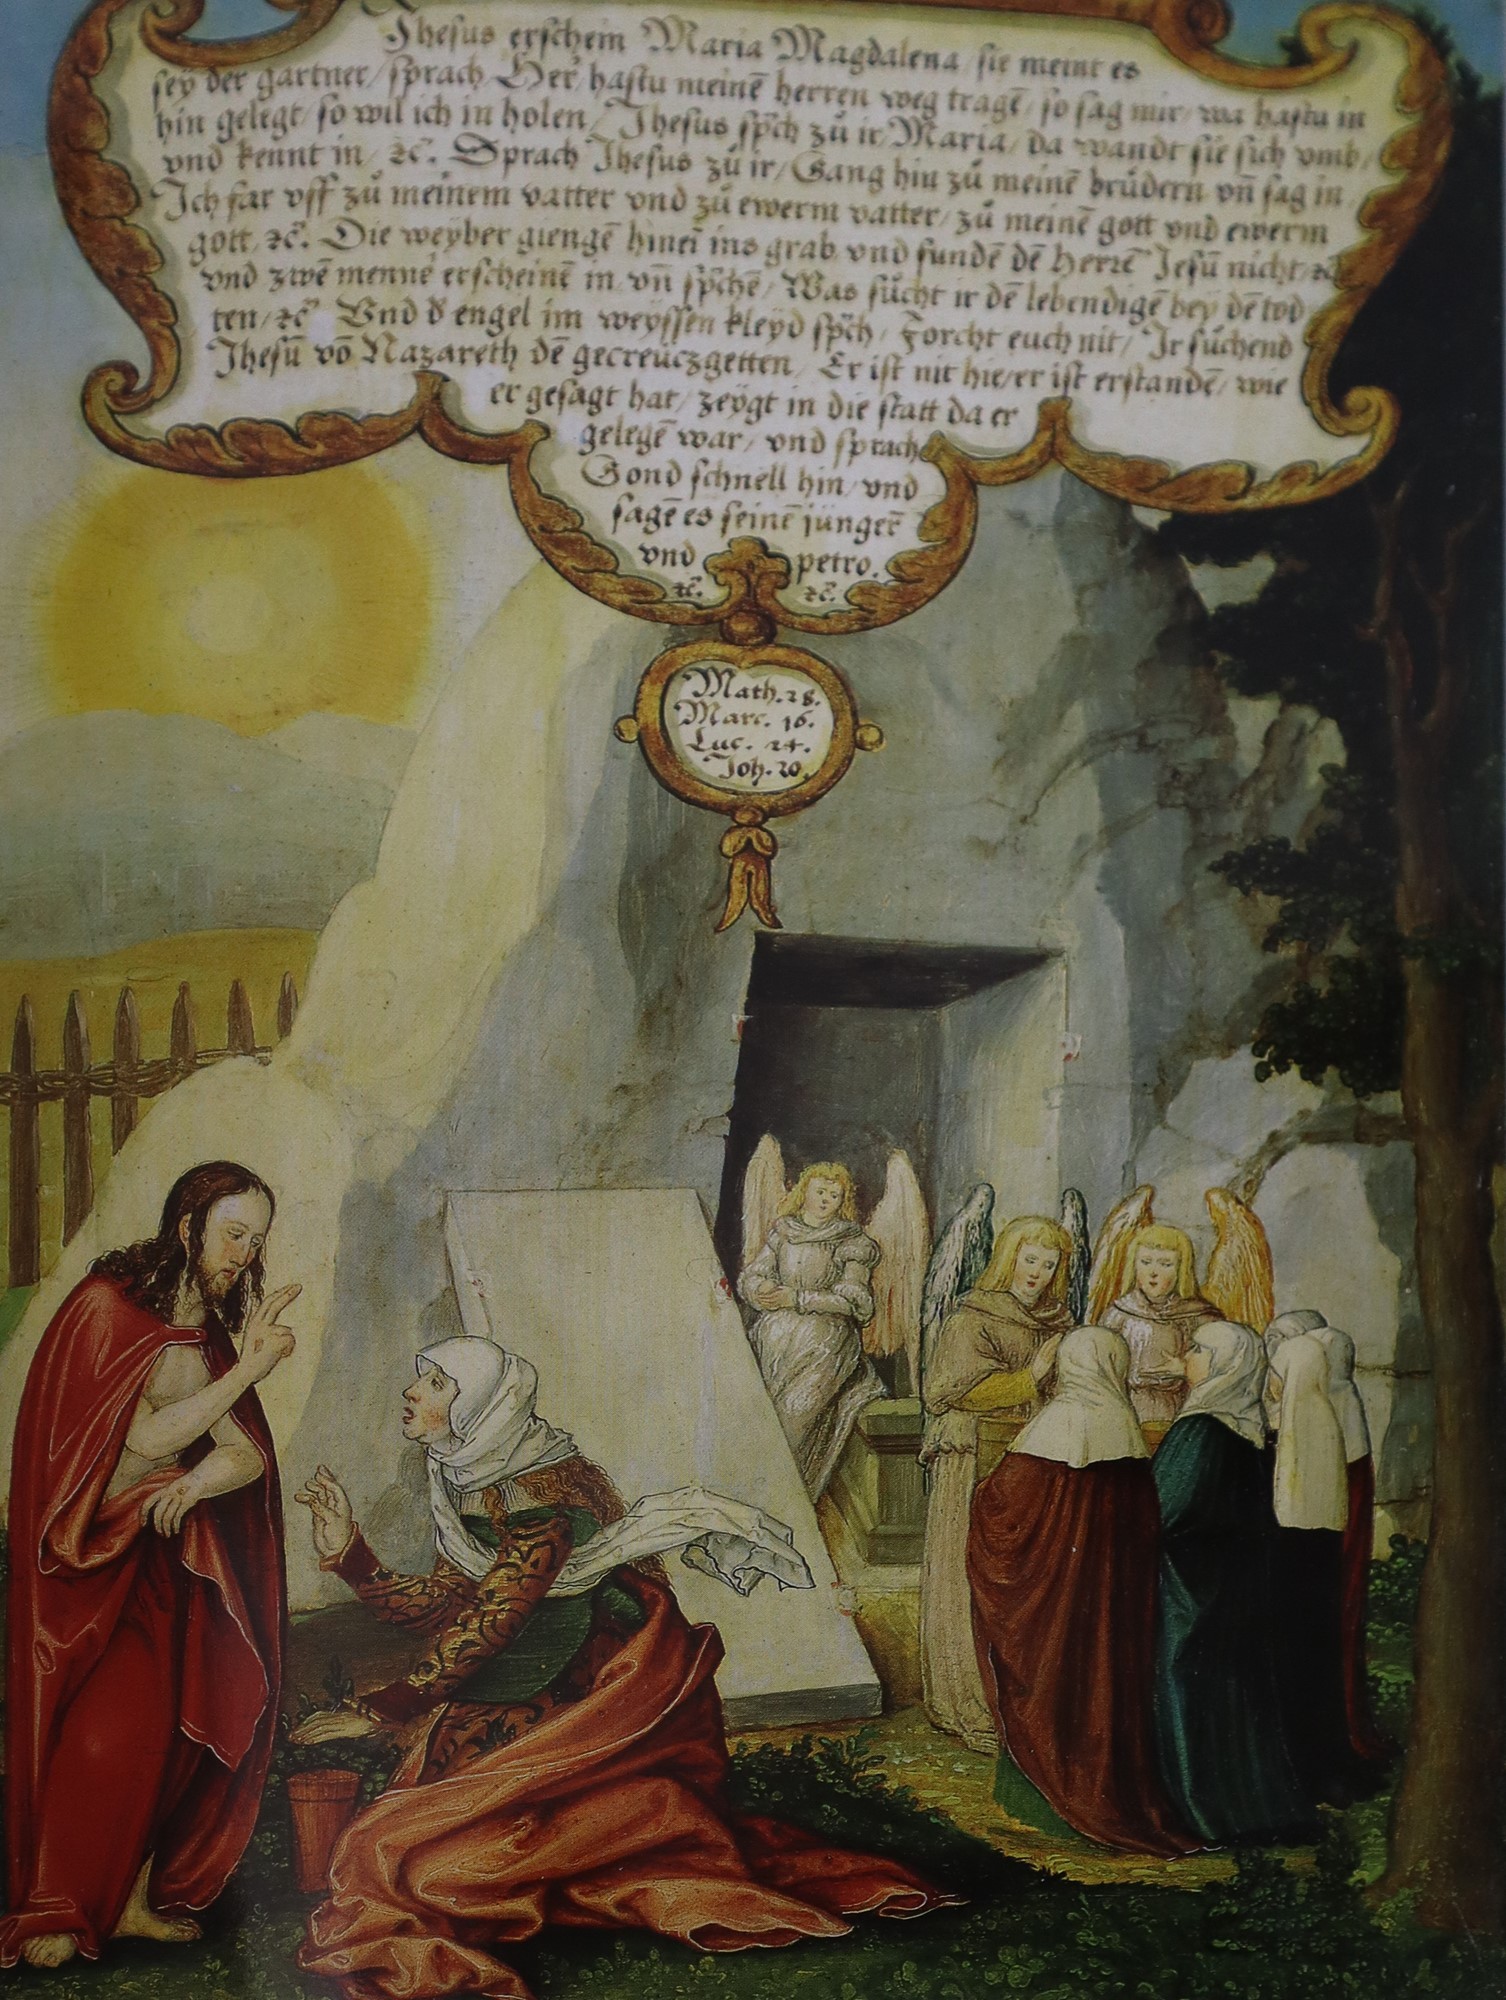 Jhesus erschein Maria Magdalena / sie meint es
sey der gartner / sprach Her / hastu meinē herren weg tragē / so sag mir / wa hastu in
hin gelegt / so wil ich in holen / Jhesus spͨch zů ir / Maria / da wandt sie sich vmb /
vnd kennt in / ꝛc̃. Sprach Jhesus zů ir / Gang hin zů meinē brüdern vn̄ sag in /
Ich far vff zů meinem vatter vnd zů ewerm vatter / zů meinē gott vnd ewerm
gott / ꝛc̃. Die weyber giengē hinei ins grab vnd fundē dē herrē Jesū nicht / ꝛc̃
vnd zwē mennē erscheinē in / vn̄ spͨchē / Was sůcht ir dē lebendigē bey dē tod
ten / ꝛc̃ Vnd d̕ engel im weyssen kleyd spͨch / Forcht euch nit / Ir sůchend
Jhesū vō Nazareth dē gecreuczgetten / Er ist nit hie / er ist erstandē / wie
er gesagt hat / zeygt in die statt da er
gelegē war / vnd sprach
Gond schnell hin / vnd
sagē es seinē jüngeȓ
vnd petro.
ꝛc̃. ꝛc̃.
Math. 28.
Marc. 16.
Luc. 24.
Joh. 20.